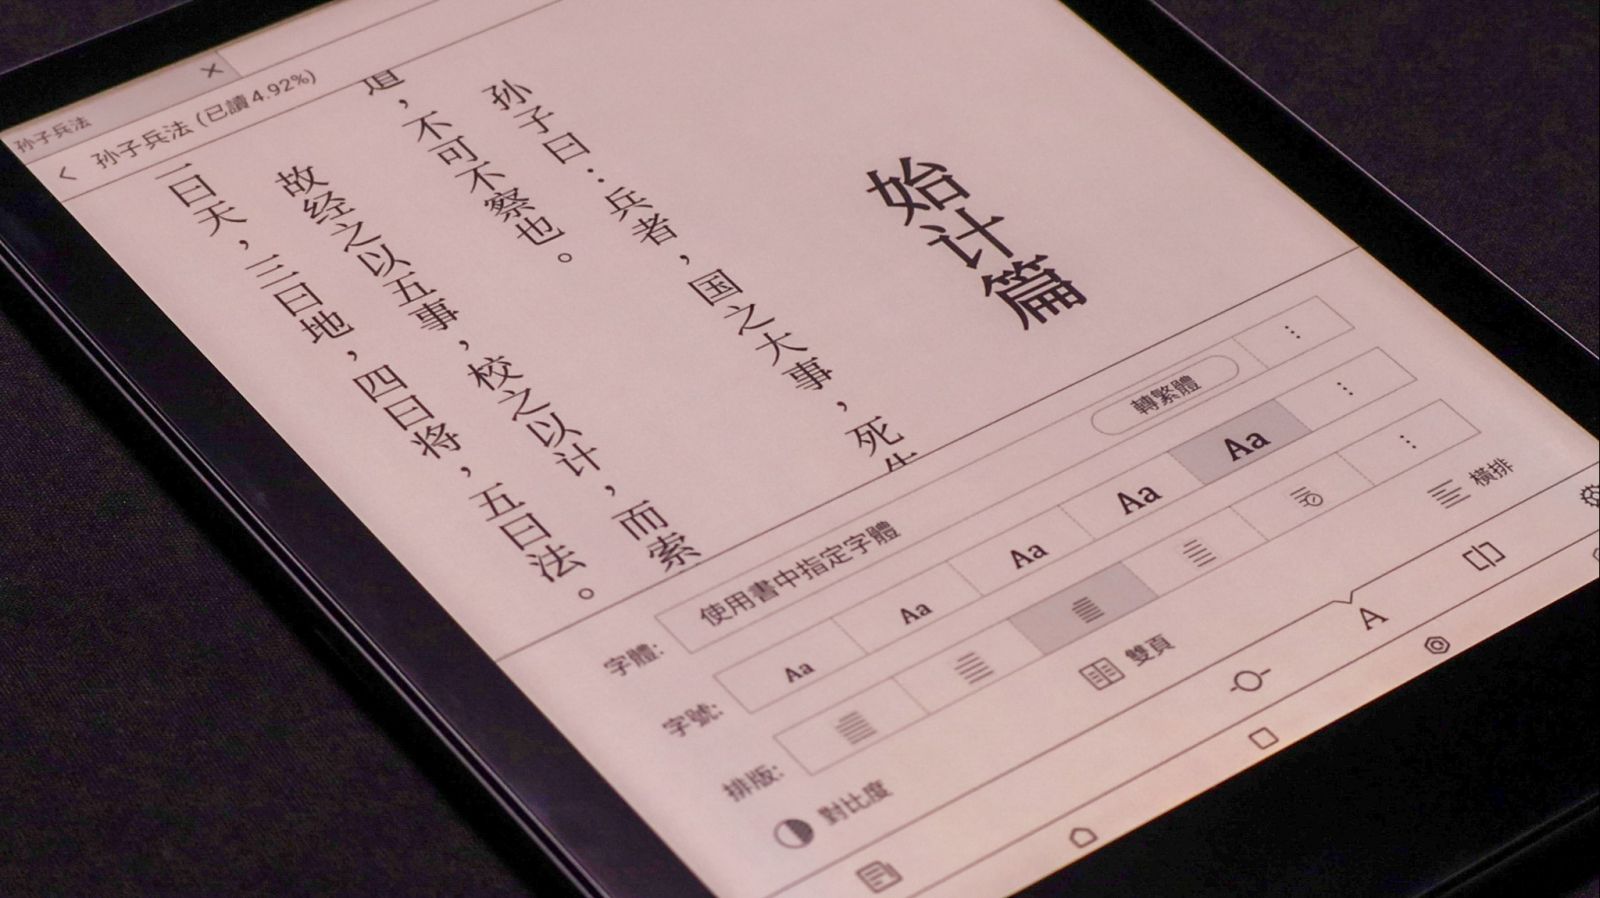 孙子兵法
孙子兵法 (已讀4.92%)
始计篇
孙子曰：兵者，国之大事，死
道，不可不察也。
故经之以五事，校之以计，而索
曰天，三曰地，四曰将，五曰法。
轉繁體
字體: 使用書中指定字體
字號: Aa Aa Aa Aa Aa
排版:
對比度 雙頁 橫排
A